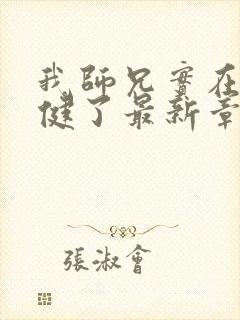 我師兄實在
健了最新章
張淑會